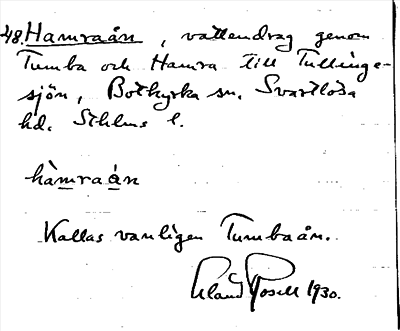 48. Hamraån, vattendrag genom
Tumba och Hamra till Tullinge-
sjön, Botkyrka sn. Svartlösa
hd. Sthlms l.
hàmraán
Kallas vanligen Tumbaån.
Erland Rosell 1930.